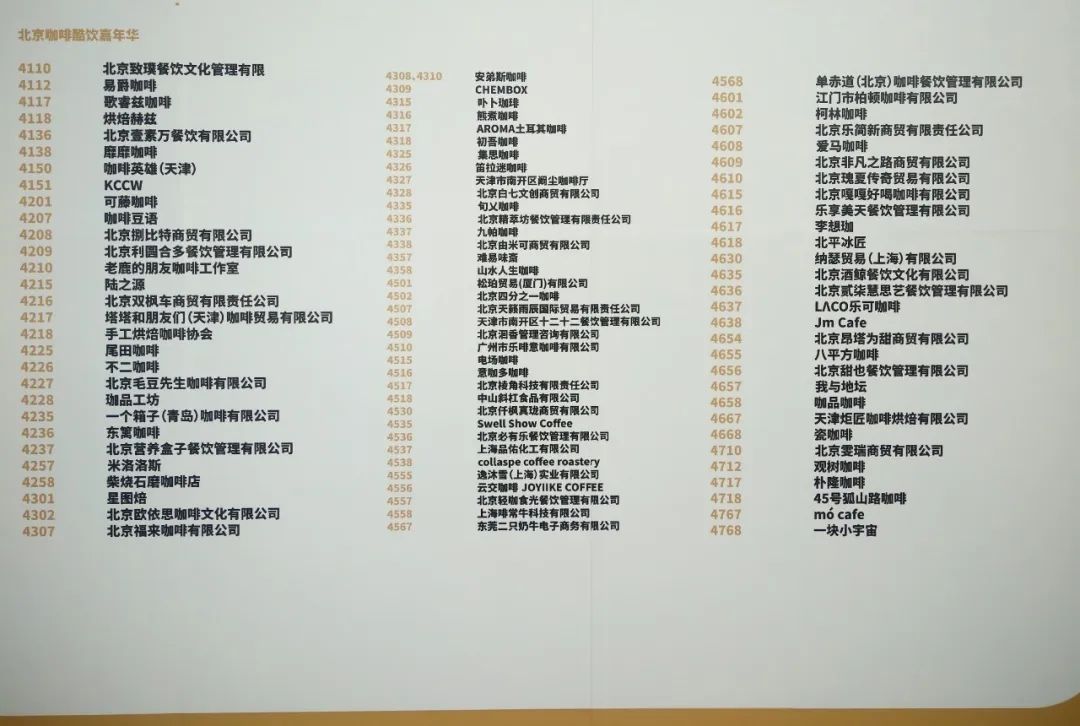 北京咖啡酷饮嘉年华
4110 北京致璞餐饮文化管理有限
4112 易爵咖啡
4117 歌睿兹咖啡
4118 烘焙赫兹
4136 北京壹素万餐饮有限公司
4138 靡靡咖啡
4150 咖啡英雄(天津)
4151 KCCW
4201 可藤咖啡
4207 咖啡豆语
4208 北京捌比特商贸有限公司
4209 北京利圆合多餐饮管理有限公司
4210 老鹿的朋友咖啡工作室
4215 陆之源
4216 北京双枫车商贸有限责任公司
4217 塔塔和朋友们(天津)咖啡贸易有限公司
4218 手工烘焙咖啡协会
4225 尾田咖啡
4226 不二咖啡
4227 北京毛豆先生咖啡有限公司
4228 珈品工坊
4235 一个箱子(青岛)咖啡有限公司
4236 东篱咖啡
4237 北京营养盒子餐饮管理有限公司
4257 米洛洛斯
4258 柴烧石磨咖啡店
4301 星图焙
4302 北京欧依思咖啡文化有限公司
4307 北京福来咖啡有限公司
4308、4310 安弟斯咖啡
4309 CHEMBOX
4315 卟卜珈琲
4316 熊煮咖啡
4317 AROMA土耳其咖啡
4318 初吾咖啡
4325 集思咖啡
4326 笛拉迷咖啡
4327 天津市南开区阙尘咖啡厅
4328 北京白七文创商贸有限公司
4335 旬乂咖啡
4336 北京精萃坊餐饮管理有限责任公司
4337 九帕咖啡
4338 北京由米可商贸有限公司
4357 难易味斋
4358 山水人生咖啡
4501 松珀贸易(厦门)有限公司
4502 北京四分之一咖啡
4507 北京天籁雨辰国际贸易有限责任公司
4508 天津市南开区十二十二餐饮管理有限公司
4509 北京洄香管理咨询有限公司
4510 广州市乐啡意咖啡有限公司
4515 电场咖啡
4516 意咖多咖啡
4517 北京棱角科技有限责任公司
4518 中山斜杠食品有限公司
4530 北京仟枫真珑商贸有限公司
4535 Swell Show Coffee
4536 北京必有乐餐饮管理有限公司
4537 上海品佑化工有限公司
4538 collaspe coffee roastery
4555 逸沐雪(上海)实业有限公司
4556 云交咖啡 JOYIIKE COFFEE
4557 北京轻咖食光餐饮管理有限公司
4558 上海啡常牛科技有限公司
4567 东莞二只奶牛电子商务有限公司
4568 单赤道(北京)咖啡餐饮管理有限公司
4601 江门市柏顿咖啡有限公司
4602 柯林咖啡
4607 北京乐简新商贸有限责任公司
4608 爱马咖啡
4609 北京非凡之路商贸有限公司
4610 北京瑰夏传奇贸易有限公司
4615 北京嘎嘎好喝咖啡有限公司
4616 乐享美天餐饮管理有限公司
4617 李想珈
4618 北平冰匠
4630 纳瑟贸易(上海)有限公司
4635 北京酒鲸餐饮文化有限公司
4636 北京贰柒慧思艺餐饮管理有限公司
4637 LΛCO乐可咖啡
4638 Jm Cafe
4654 北京昂塔为甜商贸有限公司
4655 八平方咖啡
4656 北京甜也餐饮管理有限公司
4657 我与地坛
4658 咖品咖啡
4667 天津炬匠咖啡烘焙有限公司
4668 瓷咖啡
4710 北京雯瑞商贸有限公司
4712 观树咖啡
4717 朴隆咖啡
4718 45号狐山路咖啡
4767 mó cafe
4768 一块小宇宙